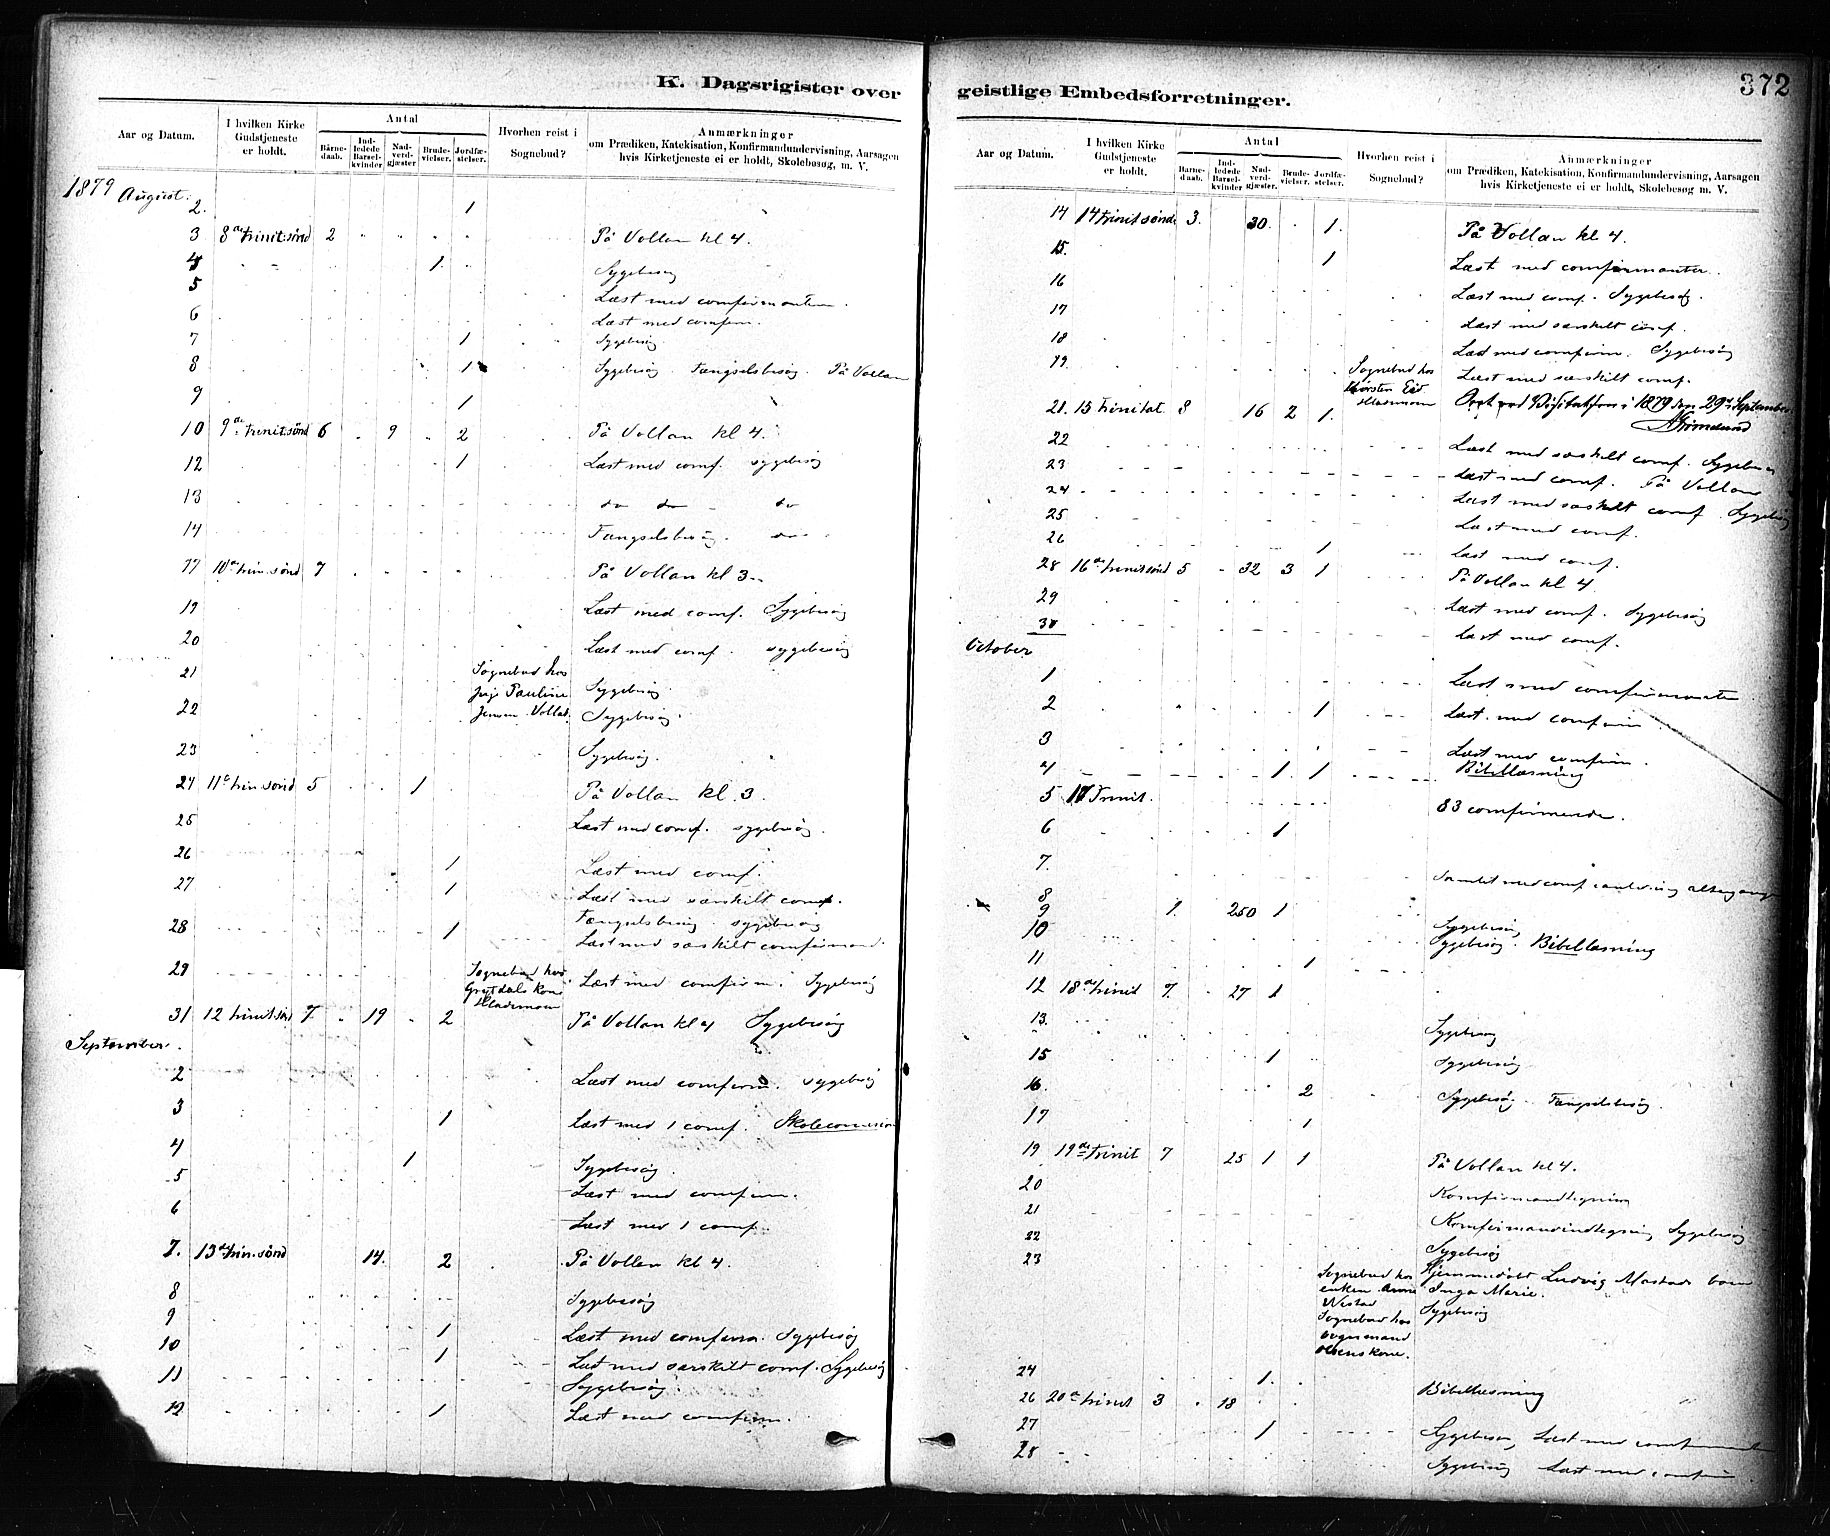 K. Dagsrigister over geistlige Embedsforretninger.
372
Aar og Datum. I hvilken Kirke Gudstjeneste er holdt. Antal Barnedaab. Indledede Barselkvinder Nadverdgjæster Brudevielser. Jordfæstelser. Hvorhen reist i Sognebud? Anmærkninger om Prædiken, Katekisation, Konfirmandundervisning, Aarsagen hvis Kirketjeneste ei er holdt, Skolebesøg, m. V.
1879 August.
2. 1
3 8de trinit:sønd 2 På Vollan kl 4.
4 1. Sygebesøg
5 Læst med comfirmanten.
6 Læst med comfirm.
7 1 Sygebesøg.
8 1 Sygebesøg. Fængselsbesøg. På Vollan
9 1
10 9de trinit:sønd 6 9 2 På Vollan kl 4.
12 1 Læst med comf. sygebesøg
13 do do do
14 Fængselsbesøg. do
17 10de trin.sønd 7 På Vollan kl 3.
19 Læst med comf. Sygebesøg
20 Læst med comf. sygebesøg
21 Sognebud hos Pauline Sygebesøg.
22 Jensen Sygebesøg.
23 Sygebesøg.
24 11te trin.sønd 5 1 På Vollan kl. 3.
25 Læst med comf. sygebesøg.
26 1 Læst med comf.
27 1 Læst med særskilt comf.
Fængselsbesøg sygebesøg
28 1 Læst med særskilt comfirmand.
29 Sognebud hos kone Læst med comfirm. Sygebesøg
31 12 trinit:sønd 7. 19 2 På Vollan kl 4 Sygebesøg
September.
2 Læst med comfirm. sygebesøg
3 1 Læst med 1 comf. Skolecomission
4 1 Sygebesøg.
5 Læst med comfirm.
6 Læst med 1 comf.
7. 13de trin.sønd 14. 2 På Vollan kl 4.
8 Sygebesøg
9 1 Læst med comfirm. Sygebesøg
10 1 Læst med særskilt comf. Sygebesøg
11 Sygebesøg.
12 1 Læst med comfirm.
Aar og Datum. I hvilken Kirke Gudstjeneste er holdt. Antal Barnedaab. Indledede Barselkvinder Nadverdgjæster. Brudevielser. Jordfæstelser. Hvorhen reist i Sognebud? Anmærkninger om Prædiken, Katekisation, Konfirmandundervisning, Aarsagen hvis Kirketjeneste ei er holdt, Skolebesøg m. V.
14 14 trinit sønd. 3. 30. 1. På Vollan kl 4.
15. 1 Læst med comfirmanter.
16 Læst med comf. Sygebesøg.
17 Læst med særskilt comf.
18 Læst med comfirm. Sygebesøg
19. Sognebud hos Læst med særskilt comf.
21. 15 trinitat. 8 16 2 1. ved Visitatsen i 1879 den 29de September
Grimelund
22 Læst med særskilt comf. Sygebesøg
23 Læst med comf. På Vollan
24 Læst med særskilt comf. Sygebesøg
25 Læst med comf.
26 1 Læst med comf.
28 16de trinit sønd 5 32 3 1 På Vollan kl 4
29 Læst med comf. Sygebesøg
30 Læst med comf.
October
1 Læst med comfirmanter
2 1 Læst med comfirm.
3 Læst med comfirm.
4 1. 1 Bibellæsning
5 17 Trinit. 83 comfirmerede.
6 1
7. Samlet med comf
8
9 1. 250 1 Sygebesøg
10 Sygebesøg. Bibellæsning
11 1
12 18de trinit 7. 27 1
13. Sygebesøg
15 1 Sygebesøg
16. 2 Sygebesøg. Fængselsbesøg.
17 1
19 19de trinit 7 25 1 1 På Vollan kl 4.
20 Komfirmandtegning
21 Komfirmandindtegning Sygebesøg
22 Sygebesøg
23 Sognebud hos enken Hjemmedøbt Ludvig barn Inga Marie.
Sognebud hos Sygebesøg
Olsens kone.
24 1. Bibellæsning
26 20de trinit 3 18
27 1 Sygebesøg, Læst med comfirmander
28 Sygebesøg Læst med comfirm.